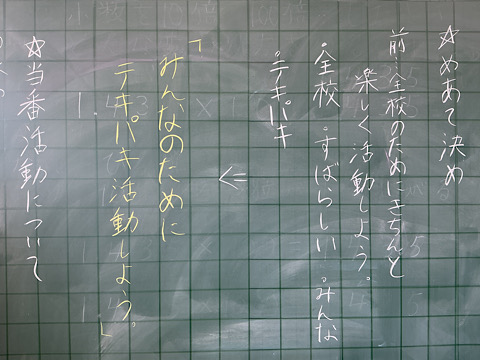 ☆めあて決め
前…全校のためにきちんと
楽しく活動しよう。
・全校 ・すばらしい ・みんな
・テキパキ
←
「みんなのために
テキパキ活動しよう。」
☆当番活動について